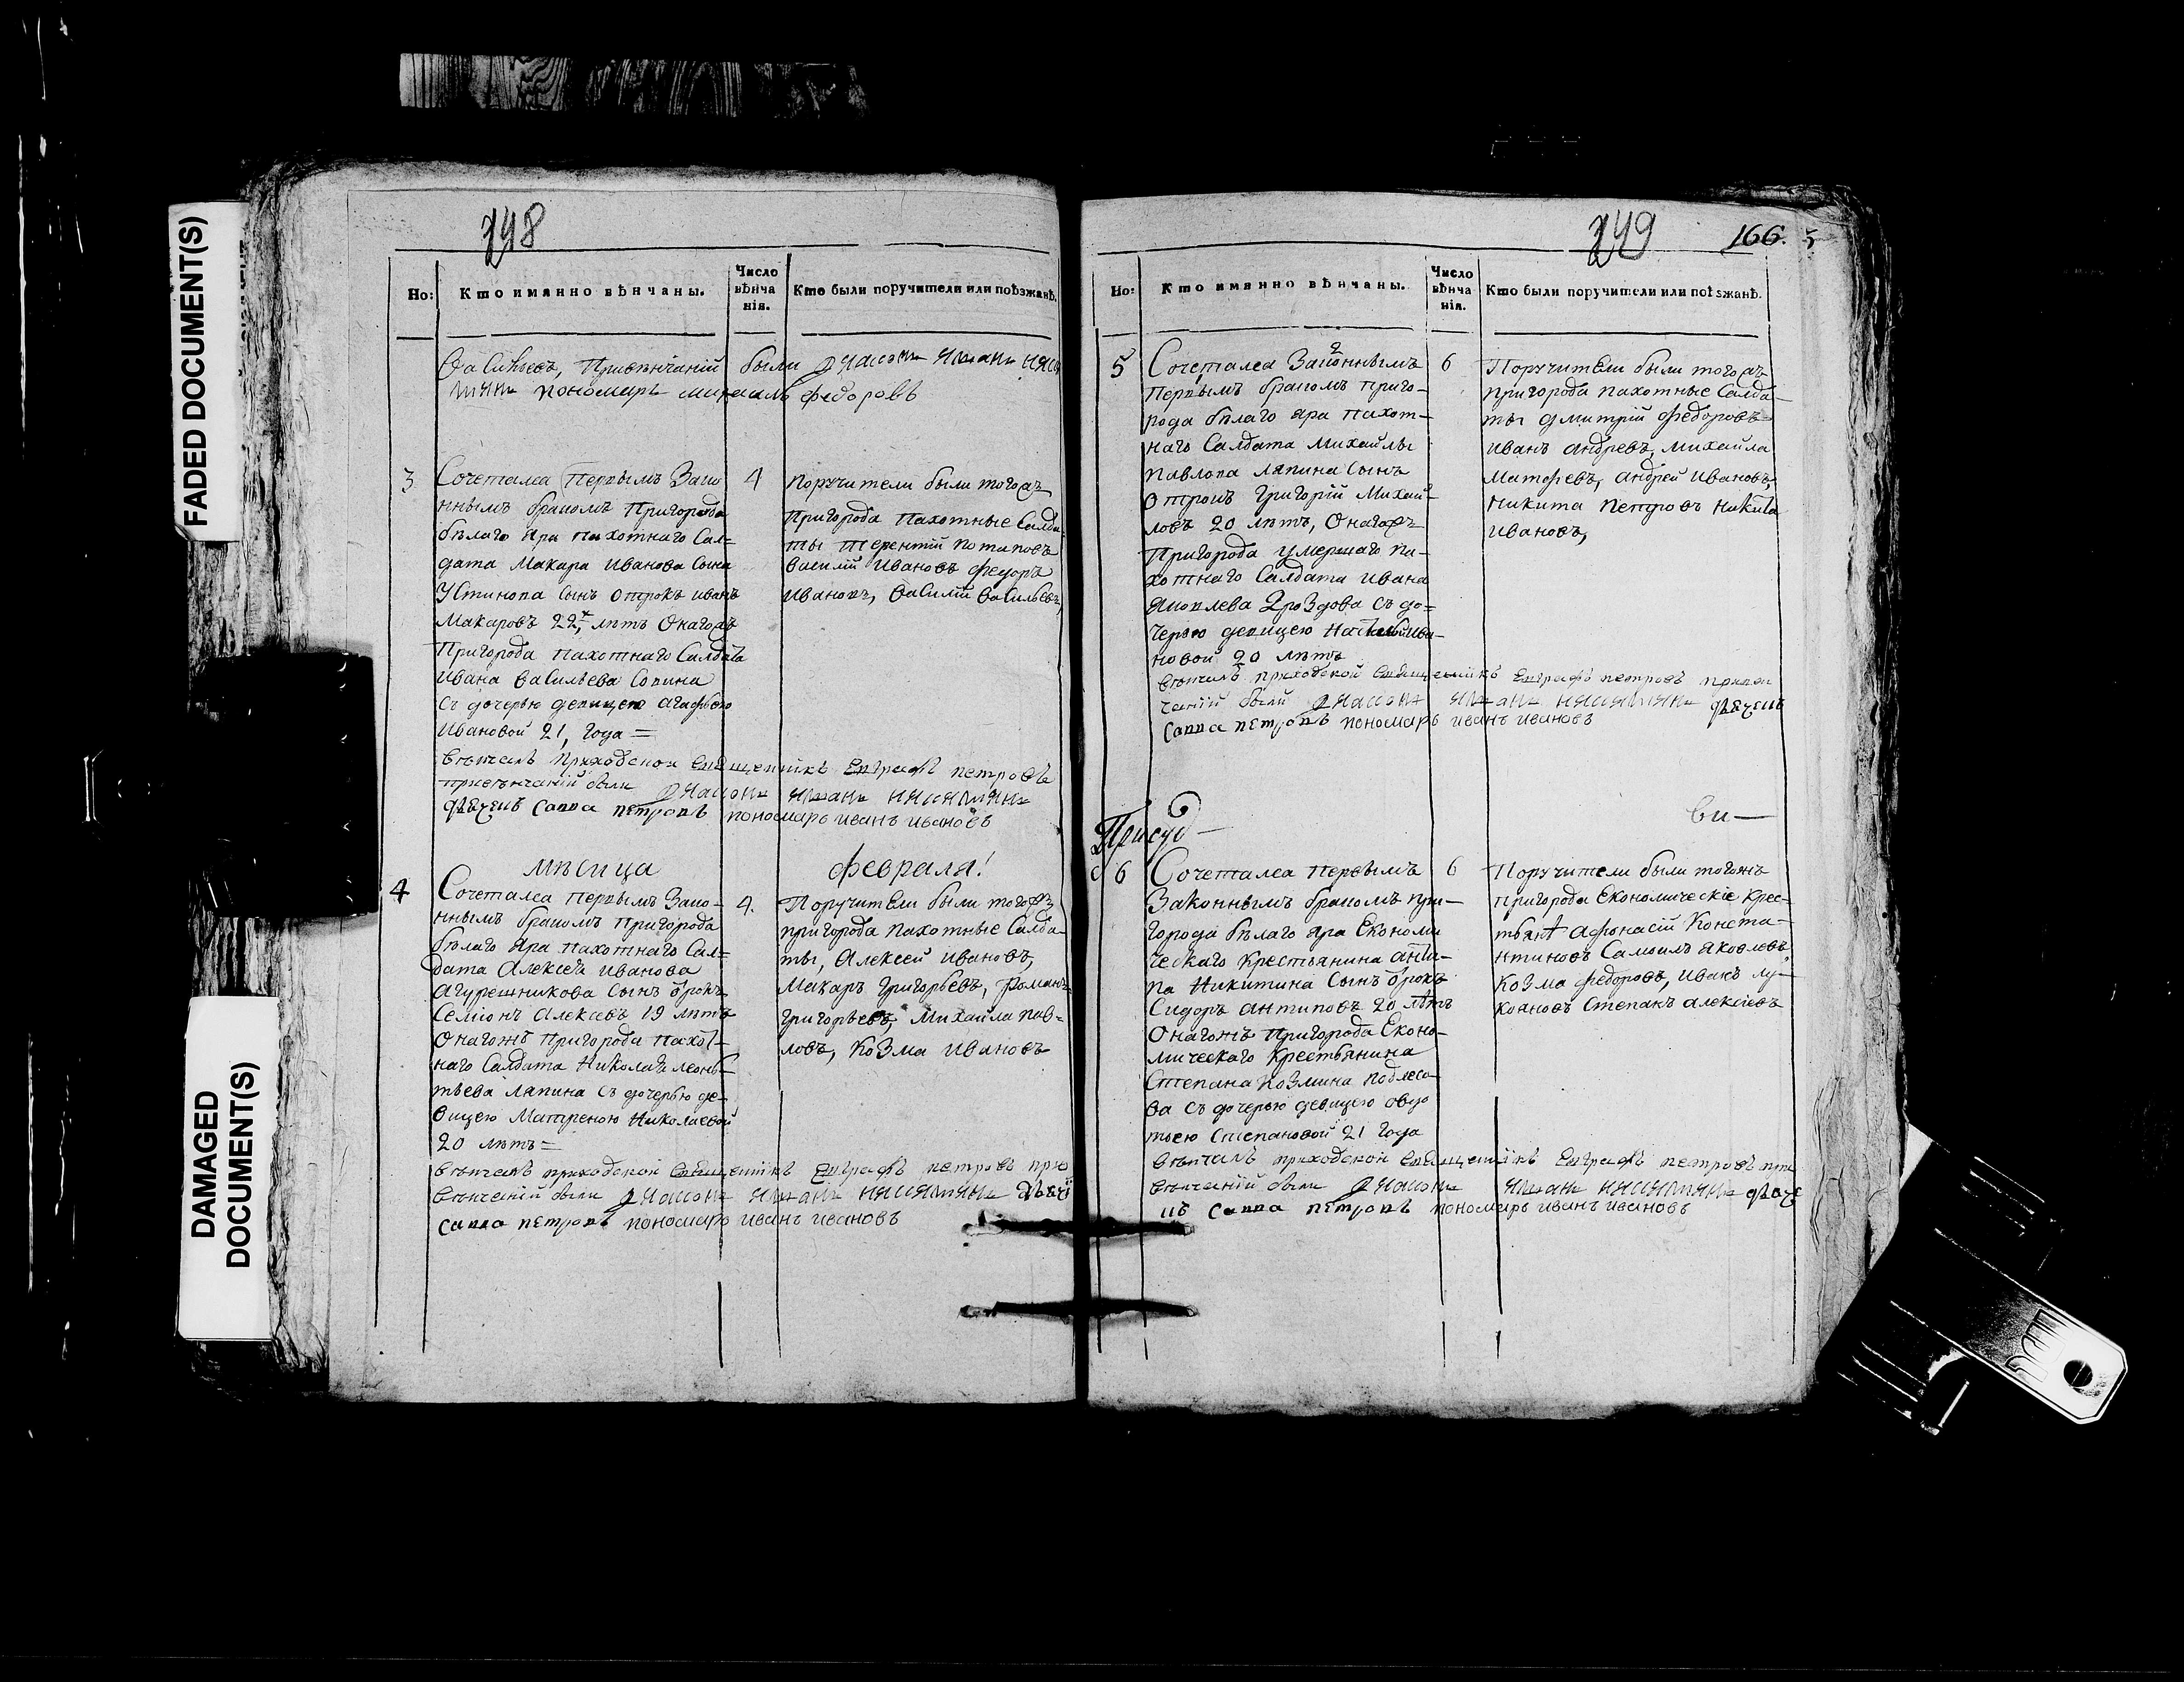 FADED DOCUMENT(S)
DAMAGED
DOCUMENT(S)
748
Но:
Кто имянно вѣнчаны.
Число
вѣнча
нія.
Кто были поручители или поѣзжанѣ.
Васильевъ, Привѣнчаніи были
пономарь федоровъ
3
Сочеталса Первымъ Зако
ннымъ бракомъ Пригорода
бѣлаго Яра пахотнаго Сал=
дата Макара Иванова Сына
Устинова Сынъ отрокъ иванъ
Макаровъ 22, лѣтъ Онагожъ
Пригорода пахотнаго Салдата
Ивана Васильева Сопина
Съ дочерью девицею агафьею
Ивановой 21, года=
4
поручители были тогожъ
Пригорода Пахотные Салда
ты терентій Потаповъ
василій Ивановъ федоръ
Ивановъ, Василій Васильевъ,
Вѣнчалъ приходской Священникъ Евграфъ петровъ
привѣнчаніи были
Савва петровъ пономарь иванъ ивановъ
мѣсица февраля!
4
Сочеталса первымъ Зако-
ннымъ бракомъ пригорода
бѣлаго Яра пахотнаго Сал=
дата Алексѣя иванова
Агурешникова Сынъ
Семіонъ Алексѣвъ 19 лѣтъ
Онагожъ Пригорода пахот-
наго Салдата Николая леонь-
тьева Ляпина Съ дочерью де-
вицею Матреною Николаевой
20 лѣтъ=
4.
Поручители были тогожъ
пригорода пахотные Салда-
ты, Алексей ивановъ,
Макаръ Григорьевъ, романъ
григорьевъ, Михайла пав=
ловъ, Козма Ивановъ
Вѣнчалъ приходской Священникъ Евграфъ петровъ при
вѣнчаніи были
Савва петровъ пономарь иванъ ивановъ
749
166.
Но:
Кто имянно вѣнчаны.
Число
вѣнча
нія.
Кто были поручители или поѣзжанѣ.
5
Сочеталса Законнымъ
Первымъ бракомъ приго-
рода бѣлаго яра пахот-
наго Салдата Михайлы
Павлова Ляпина Сынъ
Отрокъ Григорій Михай-
ловъ 20 лѣтъ, Онагожъ
Пригорода умершаго па-
хотнаго Салдата Ивана
Яковлева Дроздова Съ до=
черью девицею
новой 20 лѣтъ
6
Поручители были тогожъ
пригорода пахотные Салда-
ты дмитрій федоровъ=
иванъ андревъ, Михайла
Матфевъ, андрей Ивановъ,
Никита Петровъ Никита
Ивановъ,
Вѣнчалъ приходской Священникъ Евграфъ петровъ привен
чаніи были
Савва петровъ пономарь иванъ ивановъ
Присуд— ви—
6
Сочеталса первымъ
Законнымъ бракомъ при-
города бѣлаго яра Економи
ческаго Крестьянина анти-
па Никитина Сынъ
Сидоръ антиповъ 20 лѣтъ
Онагожъ Пригорода Еконо-
мическаго Крестьянина
Степана Козмина подлесо-
ва Съ дочерью девицею овдо
тьею Степановой 21 года
6
Поручители были тогожъ
пригорода Економическіе Крес-
тьянѣ афонасій Конста-
нтиновъ Самоилъ Яковлевъ
Козма федоровъ, Иванъ лу-
кояновъ Степанъ алексіевъ
Вѣнчалъ приходской Священникъ Евграфъ петровъ при
вѣнчаніи были
Савва петровъ пономарь иванъ ивановъ